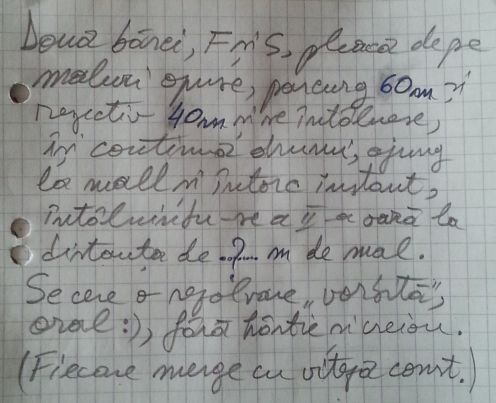 Două bărci, F și S, pleacă de pe
maluri opuse, parcurg 60m și
respectiv 40m și se întâlnesc,
își continuă drumul, ajung
la mall și întorc instant,
întâlnindu-se a II-a oară la
distanța de ..?.. m de mal.
Se cere o rezolvare „vorbită”,
oral :), fără hârtie și creion.
(Fiecare merge cu viteză const.)